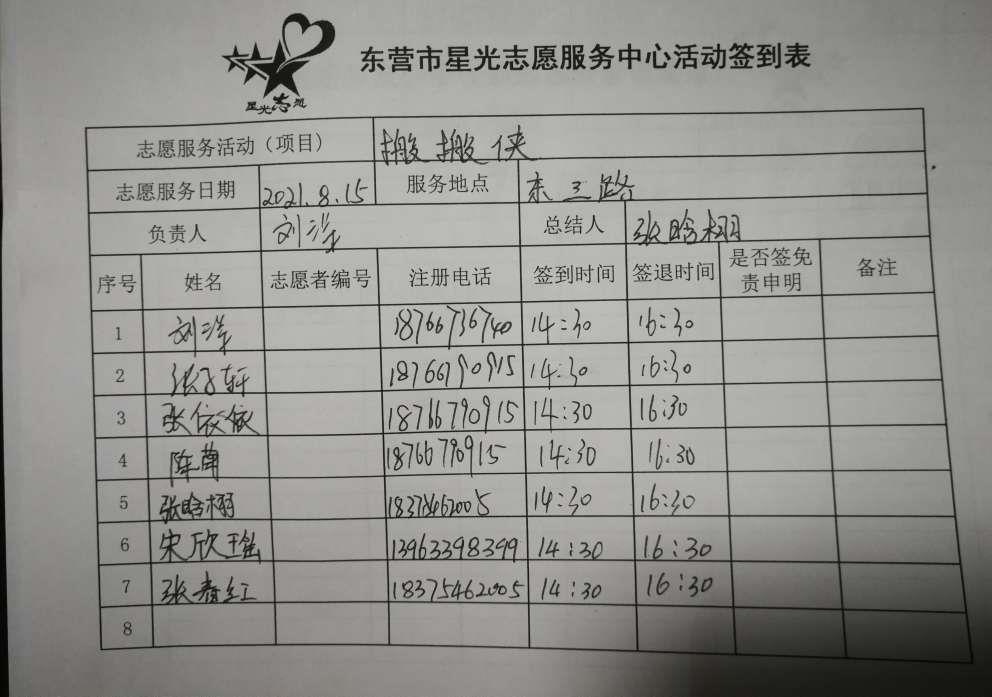 星光志愿
东营市星光志愿服务中心活动签到表
志愿服务活动（项目） 搬搬侠
志愿服务日期 2021.8.15 服务地点 东三路
负责人 刘洋 总结人 张晗栩
序号 姓名 志愿者编号 注册电话 签到时间 签退时间 是否签免责申明 备注
1 刘洋 18766736740 14:30 16:30
2 张子轩 18766790915 14:30 16:30
3 张依依 18766790915 14:30 16:30
4 陈 18766790915 14:30 16:30
5 张晗栩 18375462005 14:30 16:30
6 宋欣瑶 13963398399 14:30 16:30
7 张春红 18375462005 14:30 16:30
8